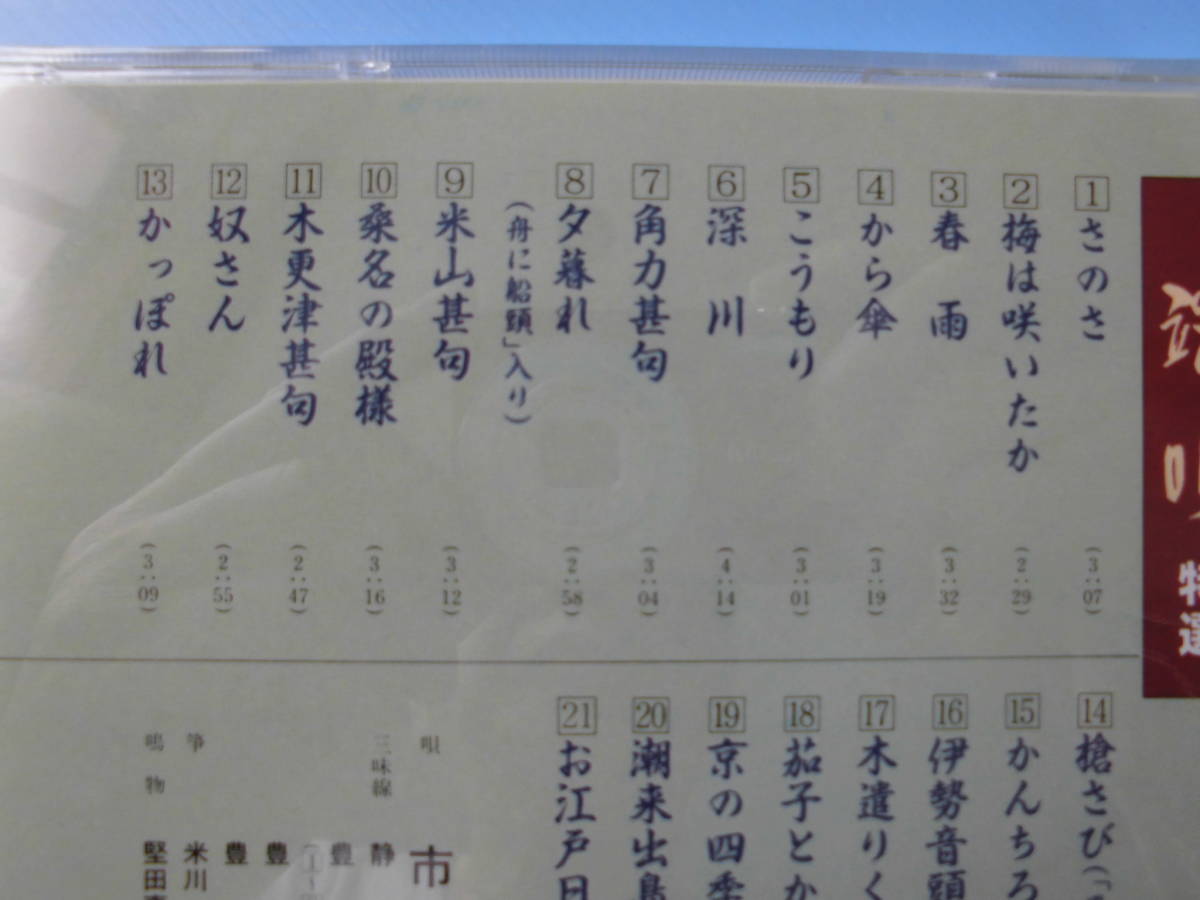 端唄
特選
1 さのさ (3:07)
2 梅は咲いたか (2:29)
3 春雨 (3:32)
4 から傘 (3:19)
5 こうもり (3:01)
6 深川 (4:14)
7 角力甚句 (3:04)
8 夕暮れ (2:58)
(舟に船頭」入り)
9 米山甚句 (3:12)
10 桑名の殿様 (3:16)
11 木更津甚句 (2:47)
12 奴さん (2:55)
13 かっぽれ (3:09)
14 槍さび(「
15 かんちろ
16 伊勢音頭
17 木遣りく
18 茄子とか
19 京の四季
20 潮来出島
21 お江戸日
唄 市
三味線 静
豊
豊
豊
箏 米川
鳴物 堅田